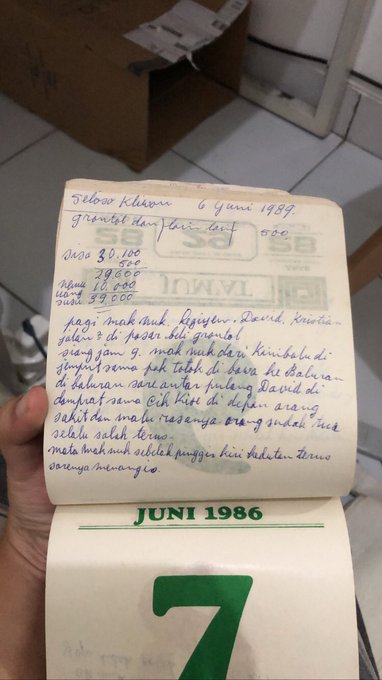 Seloso Kliwon 6 Juni 1989.
grontol dan lain lain 500
sisa 30.100
500
29600
nemu 10.000
uang
susu 39.000
pagi mak nuk. David, Kristian
jalan2 di pasar. beli grontol
siang jam 9. mak nuk dari Kinibalu di
jemput sama pak totok di bawa ke Baluran
di baluran sore antar pulang David di
damprat sama Cih Kioe di depan orang
sakit dan malu rasanya orang sudah tua
selalu salah terus.
mata mak nuk sebelah pinggir kiri kedutan terus
sorenya menanges.
JAMU
JUNI 1986
7